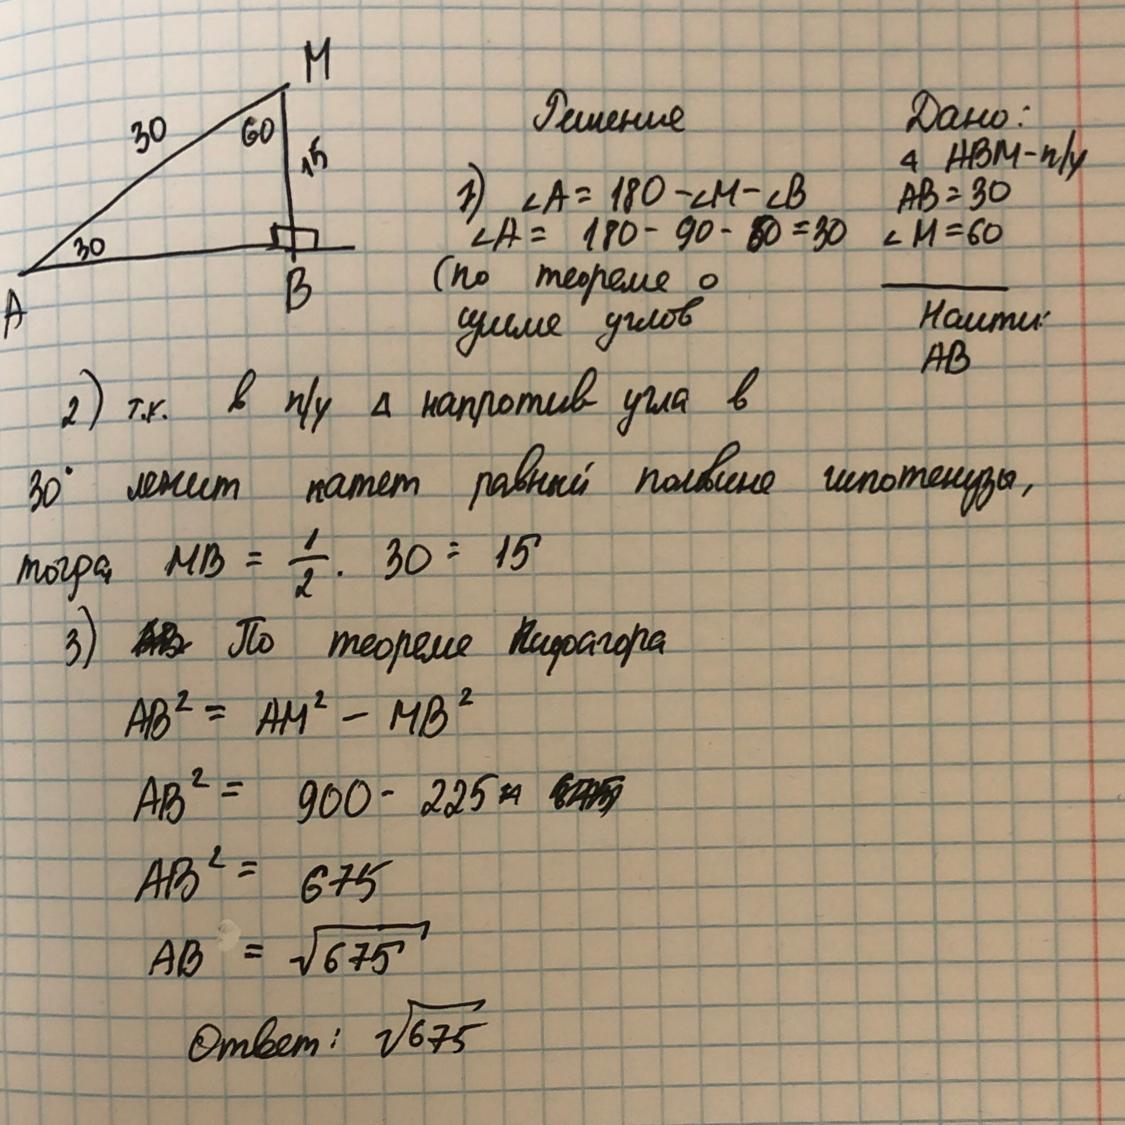 M
30
60
15
30
A
B
Решение
1) ∠A = 180 - ∠M - ∠B
∠A = 180 - 90 - 60 = 30
(по теореме о
сумме углов
Дано:
△ ABM - п/у
AB = 30
∠M = 60
Наити:
AB
2) т.к. в п/у △ напротив угла в
30° лежит катет равный половине гипотенузы,
тогда MB = 1/2 · 30 = 15
3) По теореме Пифагора
AB² = AM² - MB²
AB² = 900 - 225
AB² = 675
AB = √675
Ответ: √675